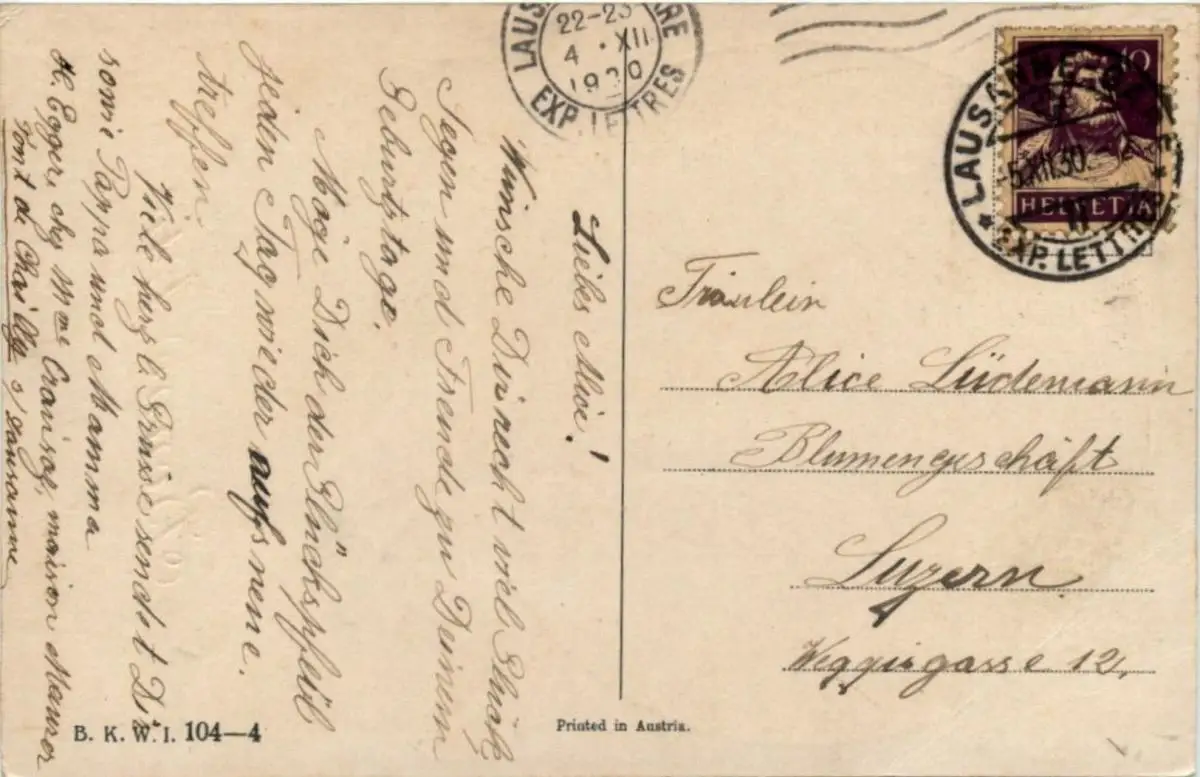 LAUSANNE GARE
22-23
4 · XII
1930
EXP. LETTRES
10
HELVETIA
LAUSANNE
-5.XII.30.
EXP. LETTRES
Fräulein
Alice Lüdemann
Blumengeschäft
Luzern
Weggisgasse 12,
Liebes Alice!
Wünsche Dir recht viel Glück
Segen und Freude zu Deinem
Geburtstage.
Möge Dich der Glückspfeil
jeden Tag wieder aufs neue
treffen.
Viele herzl. Grüsse sendet Dir
sowie Pappa und Mamma
H. Egger, chz Mme Crausaz, maison Maurer
Pont de Chailly s/Lausanne
B. K. W. I. 104-4
Printed in Austria.